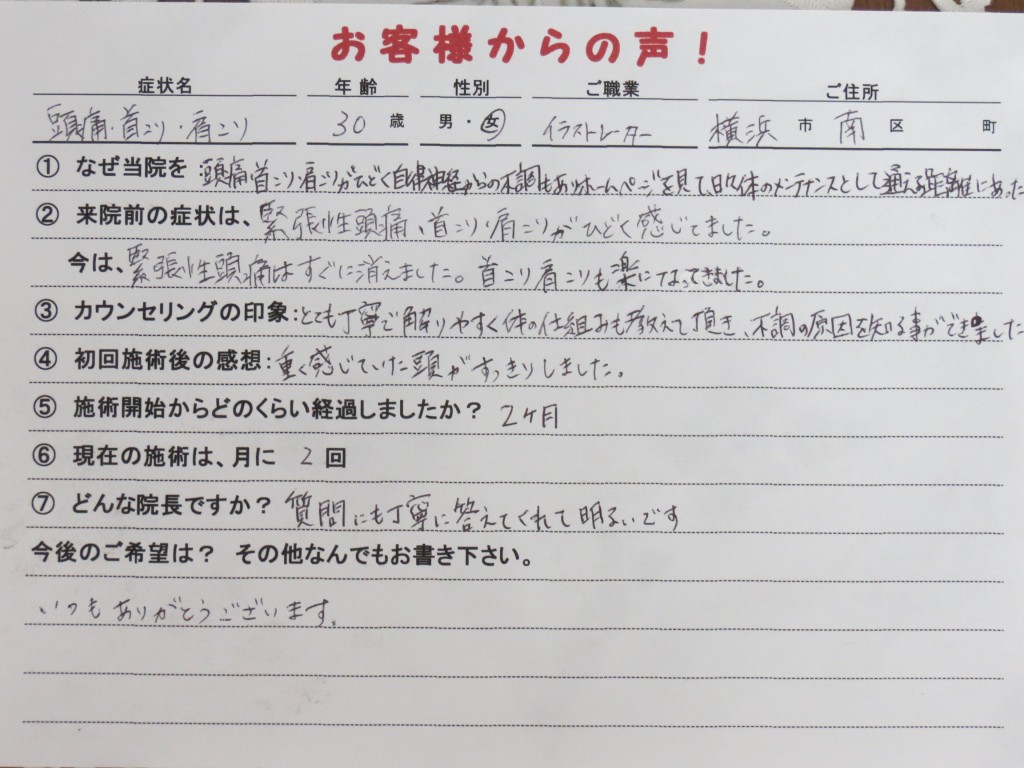 お客様からの声！
症状名 年齢 性別 ご職業 ご住所
頭痛・首こり・肩こり 30 歳 男・女 イラストレーター 横浜 市 南 区 町
① なぜ当院を 頭痛首こり・肩こりがひどく自律神経からの不調もありホームページを見て、日々体のメンテナンスとして通える距離にあった
② 来院前の症状は、緊張性頭痛、首こり・肩こりがひどく感じてました。
今は、緊張性頭痛はすぐに消えました。首こり肩こりも楽になってきました。
③ カウンセリングの印象：とても丁寧で解りやすく体の仕組みも教えて頂き、不調の原因を知る事ができました
④ 初回施術後の感想：重く感じていた頭がすっきりしました。
⑤ 施術開始からどのくらい経過しましたか？ 2ヶ月
⑥ 現在の施術は、月に 2 回
⑦ どんな院長ですか？ 質問にも丁寧に答えてくれて明るいです
今後のご希望は？ その他なんでもお書き下さい。
いつもありがとうございます。